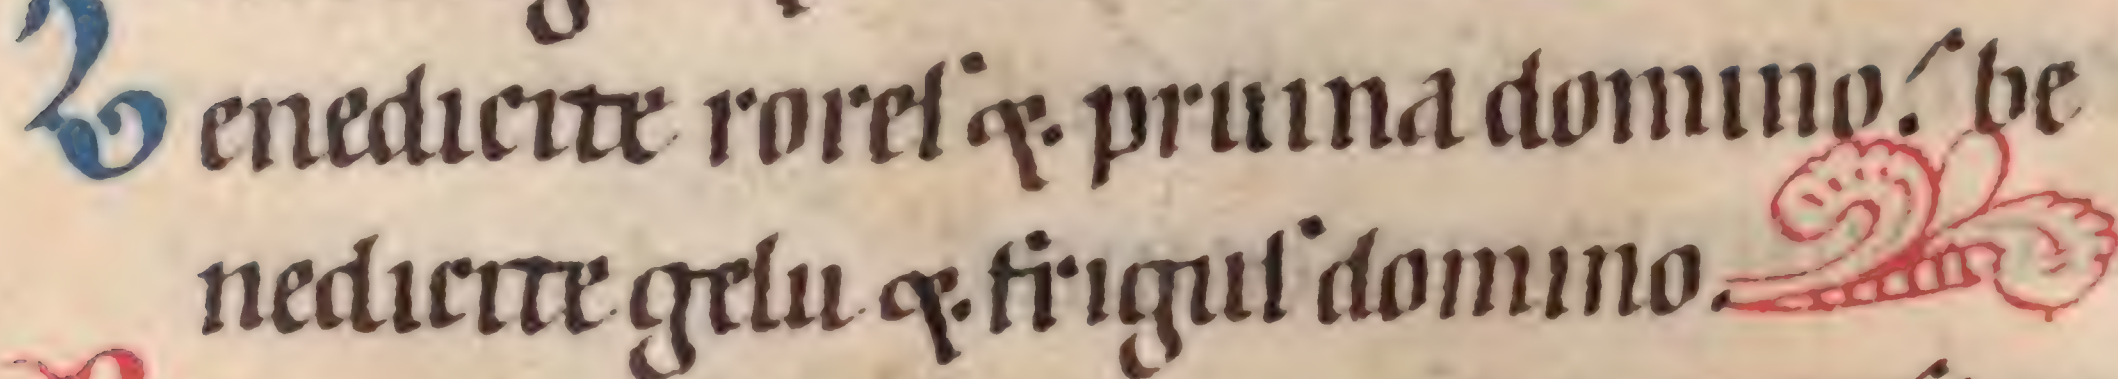 Benedicite roreſ ⁊ pruina domino: be
nedicite gelu ⁊ friguſ domino.